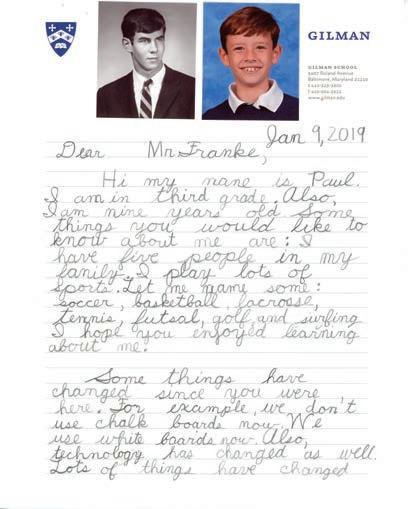 GILMAN
GILMAN SCHOOL
5407 Roland Avenue
Baltimore, Maryland 21210
www.gilman.edu
Jan 9, 2019
Dear Mr. Franke,
Hi my name is Paul.
I am in third grade. Also,
I am nine years old. Some
things you would like to
know about me are: I
have five people in my
family. I play lots of
sports. Let me name some:
soccer, basketball, lacrosse,
tennis, futsal, golf, and surfing
I hope you enjoyed learning
about me.
Some things have
changed since you were
here. For example, we don't
use chalk boards now. We
use white boards now. Also,
technology has changed as well.
Lots of things have changed